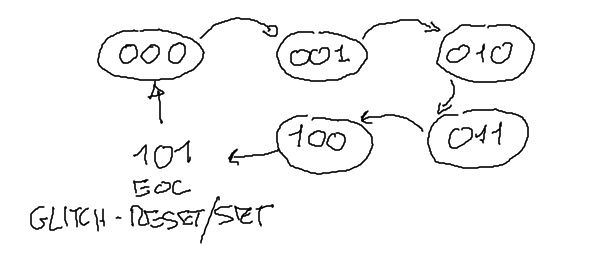 000 001 010
101 100 011
EOC
GLITCH-RESET/SET